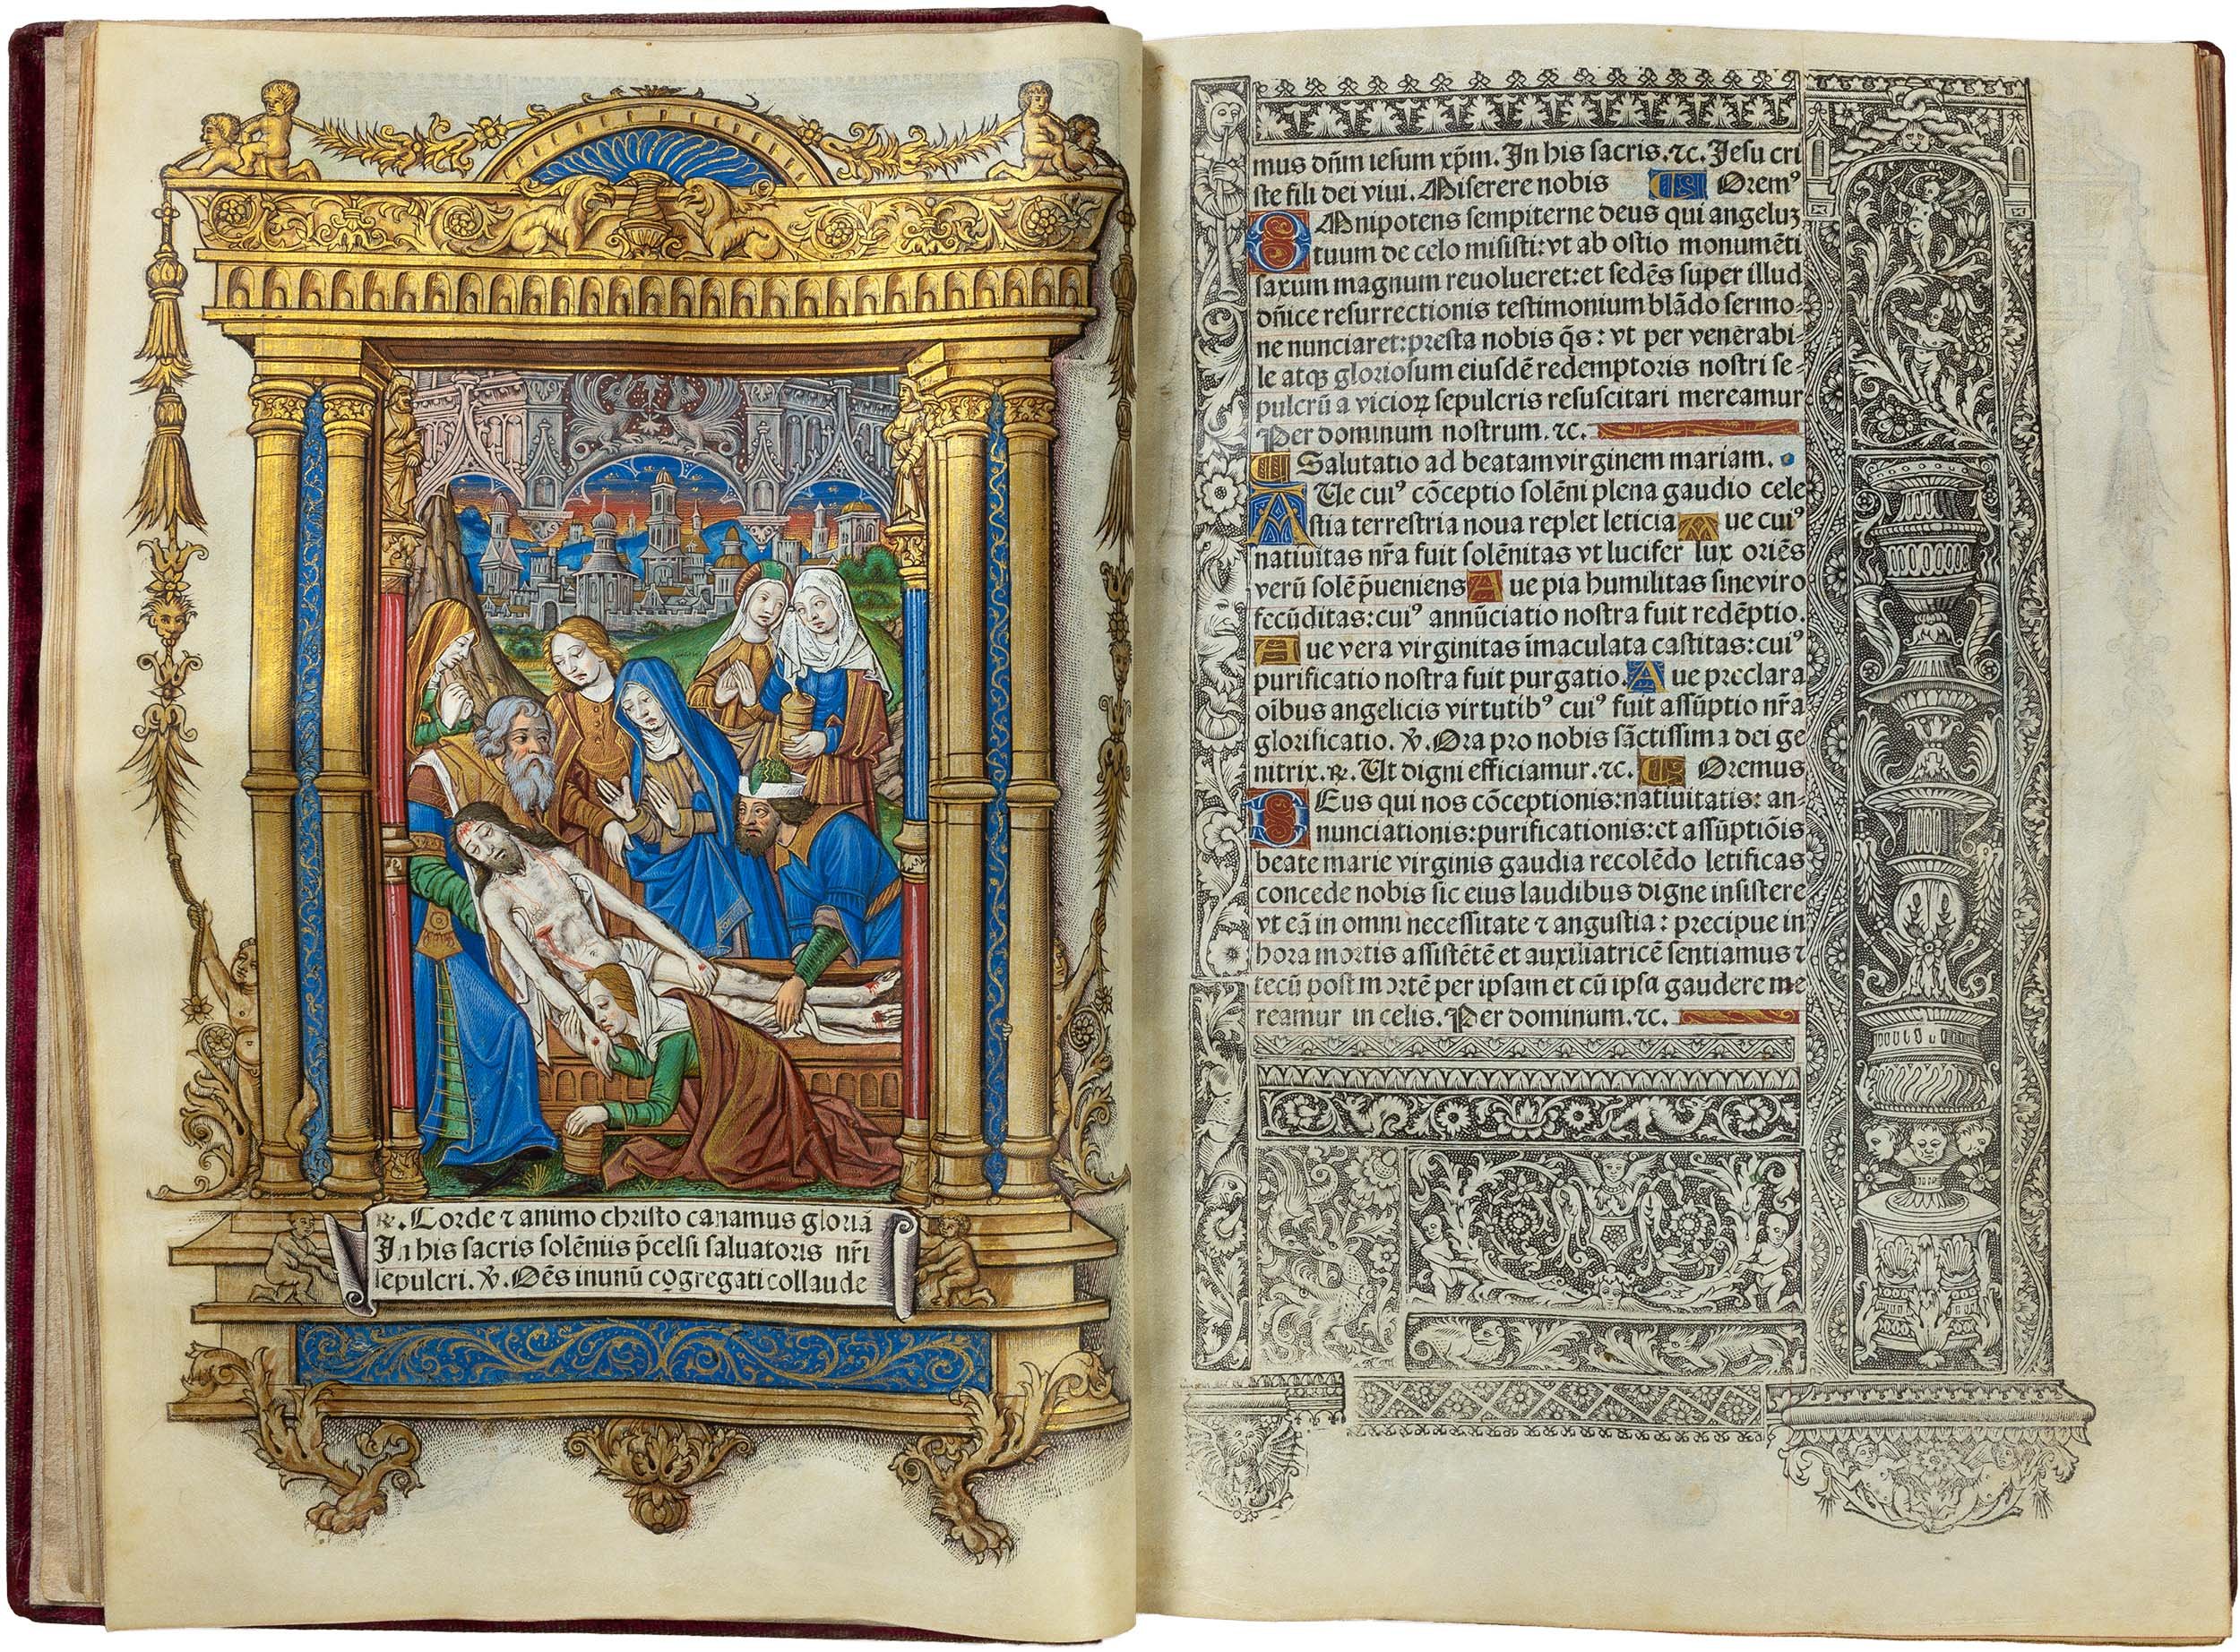 ℟. Corde ⁊ animo christo canamus gloriā
In his sacris solēniis p̄celsi saluatoris nr̄i
sepulcri. ℣. Oēs in unū cōgregati collaude
mus dn̄m iesum xp̄m. In his sacris. ⁊c. Jesu cri
ste fili dei viui. Miserere nobis Oremꝰ
OMnipotens sempiterne deus qui angelum
tuum de celo misisti: vt ab ostio monumēti
saxum magnum reuolueret: et sedēs super illud
dn̄ice resurrectionis testimonium blādo sermo-
ne nunciaret: presta nobis q̄s: vt per venerabi-
le atqꝫ gloriosum eiusdē redemptoris nostri se-
pulcrū a vicioꝝ sepulcris resuscitari mereamur
Per dominum nostrum. ⁊c.
Salutatio ad beatam virginem mariam.
AUe cuiꝰ cōceptio solēni plena gaudio cele
stia terrestria noua replet leticia Aue cuiꝰ
natiuitas nr̄a fuit solēnitas vt lucifer lux oriēs
verū solē p̄ueniens Aue pia humilitas sine viro
fecūditas: cuiꝰ annūciatio nostra fuit redēptio.
Aue vera virginitas īmaculata castitas: cuiꝰ
purificatio nostra fuit purgatio. Aue preclara
oībus angelicis virtutibꝰ cuiꝰ fuit assūptio nr̄a
glorificatio. ℣. Ora pro nobis sāctissima dei ge
nitrix. ℟. Ut digni efficiamur. ⁊c. Oremus
DEus qui nos cōceptionis: natiuitatis: an-
nunciationis: purificationis: et assūptiōis
beate marie virginis gaudia recolēdo letificas
concede nobis sic eius laudibus digne insistere
vt eā in omni necessitate ⁊ angustia: precipue in
hora mortis assistētē et auxiliatricē sentiamus ⁊
tecū post mortē per ipsam et cū ipsa gaudere me
reamur in celis. Per dominum. ⁊c.